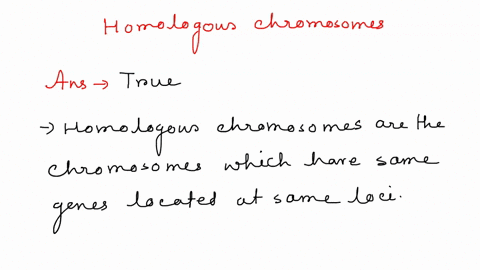 Homologous chromosomes
Ans → True
→ Homologous chromosomes are the
chromosomes which have same
genes located at same loci.